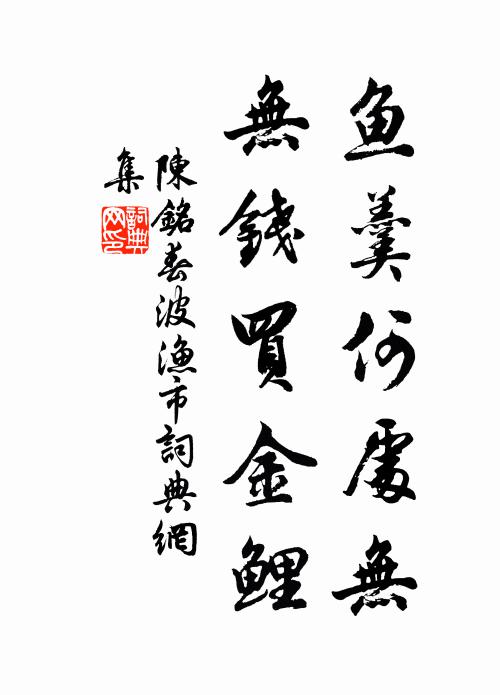 鱼羹何處無
無錢買金鯉
陳銘春波漁市詞典網
集
詞典
网印